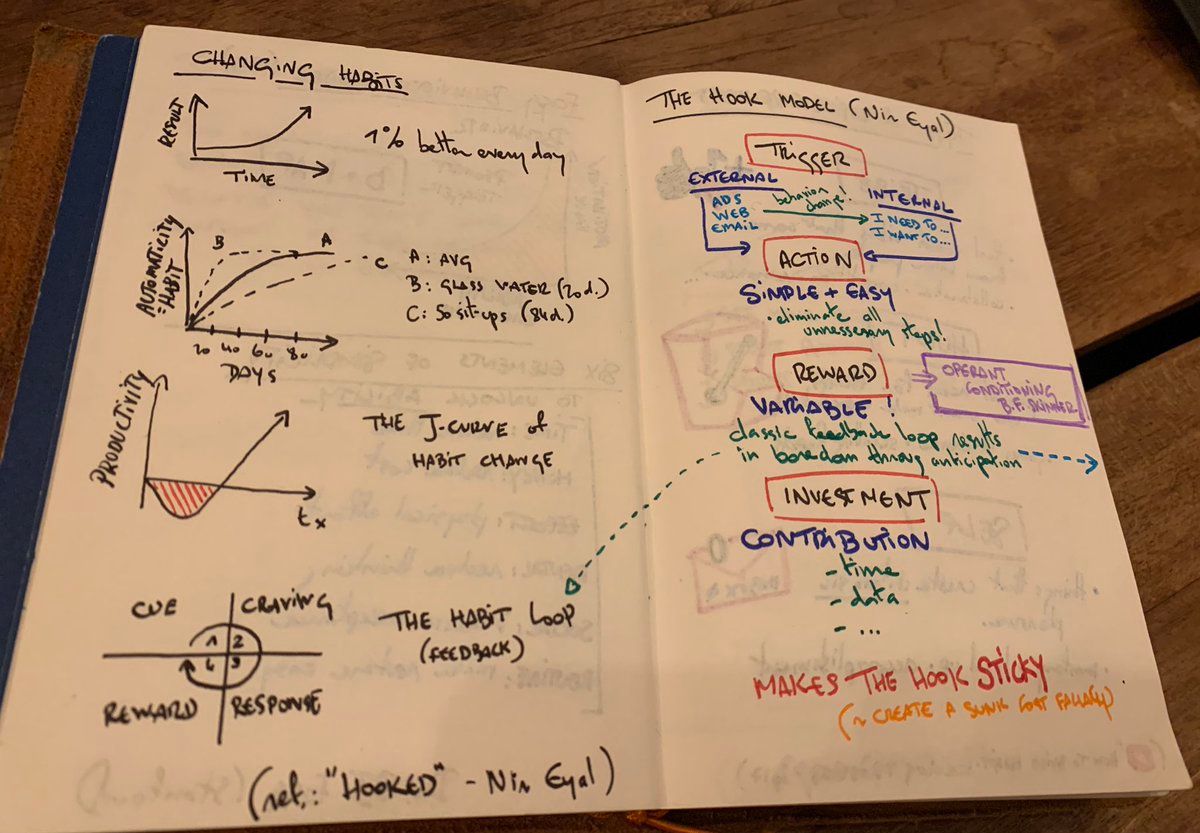 CHANGING HABITS
RESULT
TIME
1% better every day
AUTOMATICITY
=HABIT
B
A
C
20 40 60 80
DAYS
A: AVG
B: GLASS WATER (20d.)
C: 50 sit-ups (84d)
PRODUCTIVITY
tx
THE J-CURVE of
HABIT CHANGE
CUE
CRAVING
1 2
4 3
REWARD
RESPONSE
THE HABIT LOOP
(FEEDBACK)
(ref.: "HOOKED" - Nir Eyal)
THE HOOK MODEL (Nir Eyal)
TRIGGER
EXTERNAL
ADS
WEB
EMAIL
behavior
change!
INTERNAL
I NEED TO...
I WANT TO...
ACTION
SIMPLE + EASY
• eliminate all
unnessesary steps!
REWARD
OPERANT
CONDITIONING
B.F. SKINNER
VARIABLE!
classic feedback loop results
in boredom throug anticipation
INVESTMENT
CONTRIBUTION
- time
- data
- ...
MAKES THE HOOK STICKY
(~ CREATE A SUNK COST FALLACY)